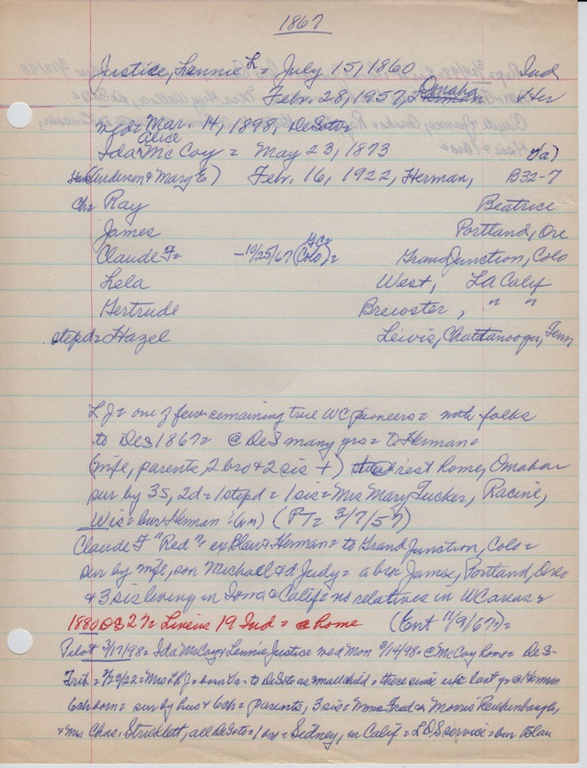 1867
Justice, Lonnie L = July 15, 1860 Ind
Febr. 28, 1957, Omaha Her
md = Mar. 14, 1898, DeSoto =
Ida Alice McCoy = May 23, 1873 Va)
(Anderson & Mary E) Febr. 16, 1922, Herman, B32-7
Ch = Ray Beatrice
James Portland, Ore
Claude F = -10/25/67 (GC = Colo) = Grand Junction, Colo
Lela West, LA Calif
Gertrude Brewster, " "
stepd = Hazel Lewis, Chattanooga, Tenn
L J = one of few remaining true WC pioneers = with folks
to DeS 1867 = @ DeS many yrs = to Herman =
(wife, parents, 2 bro & 2 sis +) rest Home, Omaha =
sur by 3s, 2d = 1 stepd = 1 sis = Mrs Mary Tucker, Racine,
Wis = bur Herman = (PT = 3/7/57)
Claude F "Red" = ex Blair & Herman = to Grand Junction, Colo =
sur by wife, son Michael & d Judy = a bro James, Portland, Ore
& 3 sis living in Iowa & Calif = no relatives in WC area =
1880 DS 27 = 19 Ind = @ Rome (Ent 11/9/67) =
Pilot 3/17/98 = Ida McCoy & Lonnie Justice md Mon 3/14/98 @ McCoy Home = DeS -
Trib = 2/23/22 = Mrs L J = born Va - to DeSoto as small child = there since exc last yr @ Herman
6 ch born = sur by hus & 6 ch = parents, 3 sis = Mmes Fred & Morris Reichenbaugh,
& Mrs Chas. Stricklett, all DeSoto = 1 bro = Sidney, in Calif = LDS service = bur Blair